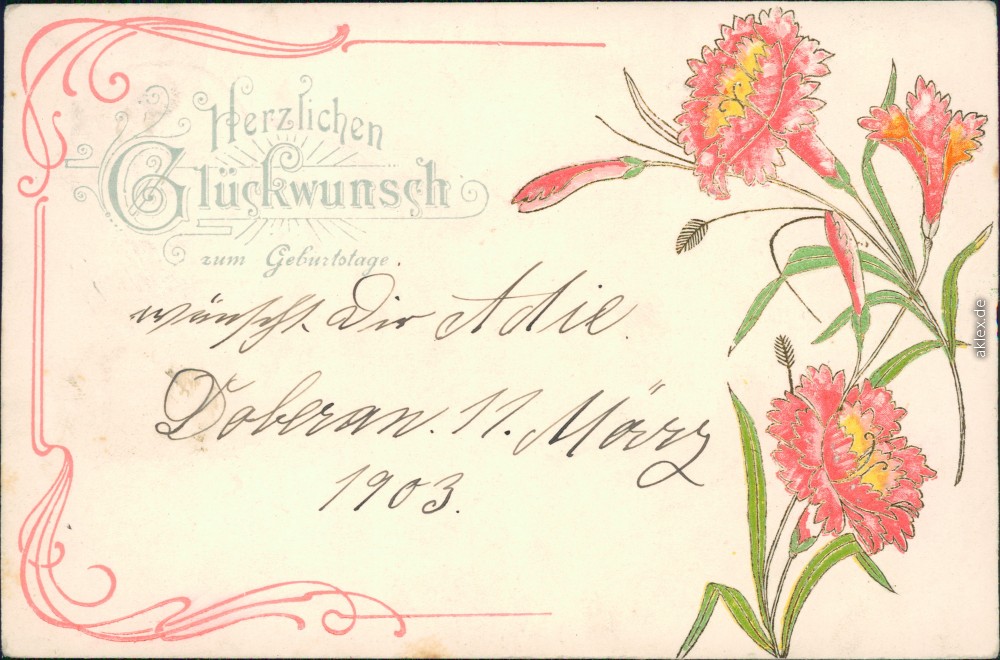 Herzlichen
Glückwunsch
zum Geburtstage.
wünscht Dir Adie.
Doberan. 11. März
1903.
aklex.de